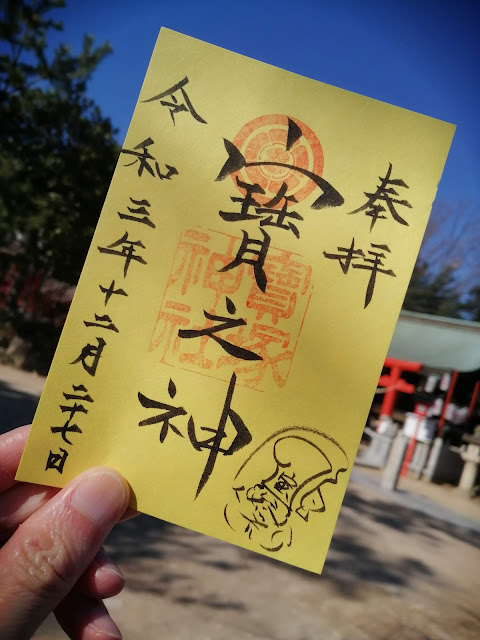 奉拝
寳之神
寳塚神社
令和三年十二月二十七日